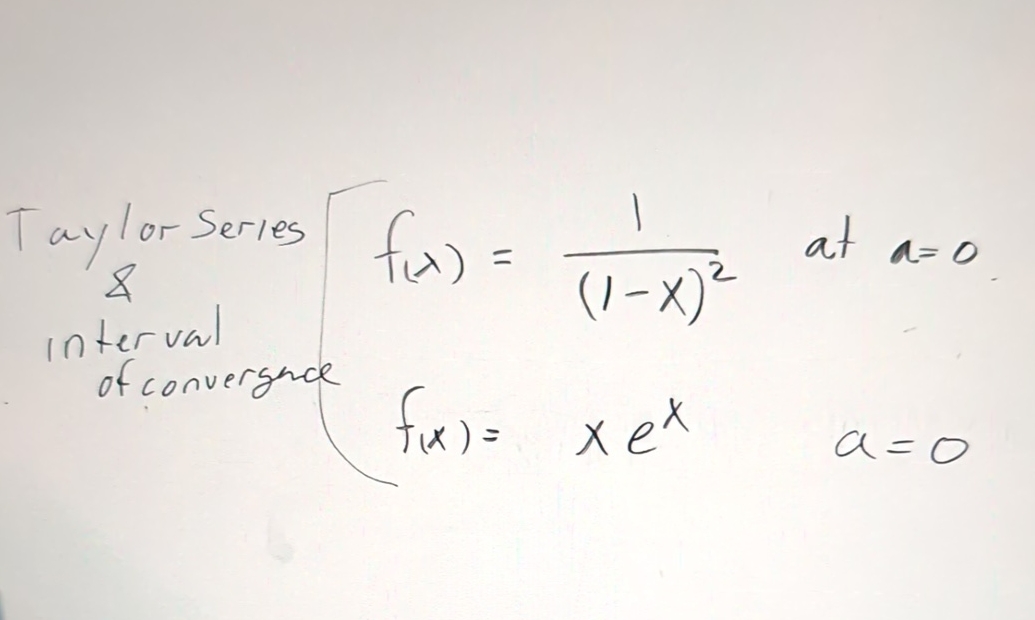 Taylor Series
&
interval
of convergnce
f(x) = 1/(1-x)² at a=0
f(x) = x eˣ a=0